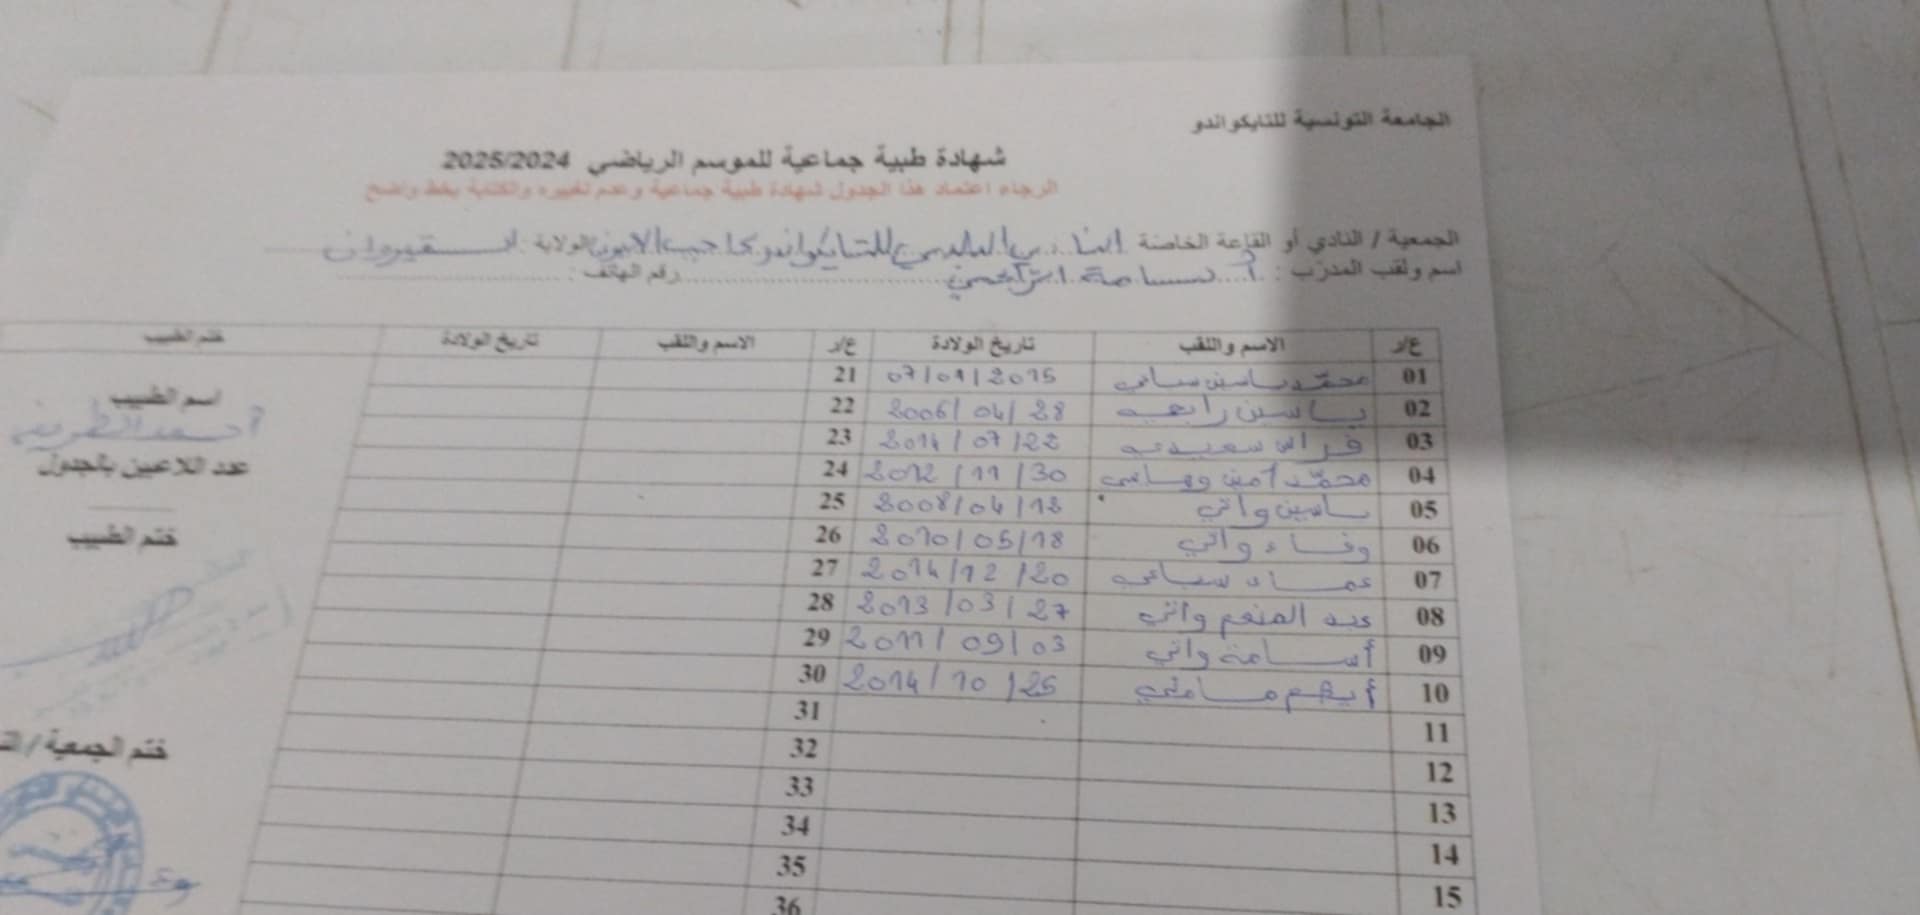 الجامعة التونسية للتايكواندو
شهادة طبية جماعية للموسم الرياضي 2025/2024
الرجاء اعتماد هذا الجدول لشهادة طبية جماعية وعدم تغييره والكتابة بخط واضح
الجمعية / النادي أو القاعة الخاصة النادي البلدي للتايكواندو بحاجب العيون الولاية القيروان
اسم ولقب المدرب : أسامة رقم الهاتف :
ع/ر الاسم واللقب تاريخ الولادة ع/ر الاسم واللقب تاريخ الولادة ختم الطبيب
01 محمد ياسين 07/01/2015 21
02 ياسين رابحي 2006/04/28 22
03 فراس سعيدي 2014/07/22 23
04 محمد أمين 2012/11/30 24
05 ياسين واتي 2008/04/12 25
06 وفاء واتي 2010/05/18 26
07 عماد سباعي 2014/12/20 27
08 عبد المنعم واتي 2013/03/27 28
09 أسامة واتي 2011/09/03 29
10 أيهم 2014/10/25 30
11 31
12 32
13 33
14 34
15 35
36
اسم الطبيب
أحمد
عدد اللاعبين بالجدول
ختم الطبيب
ختم الجمعية /